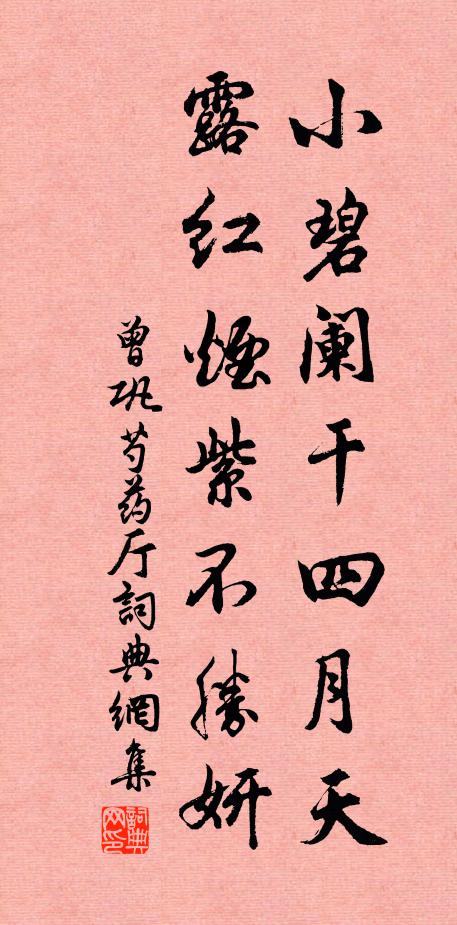 小碧阑干四月天
露红煙紫不勝妍
曾巩芍药厅詞典網集
詞典网印